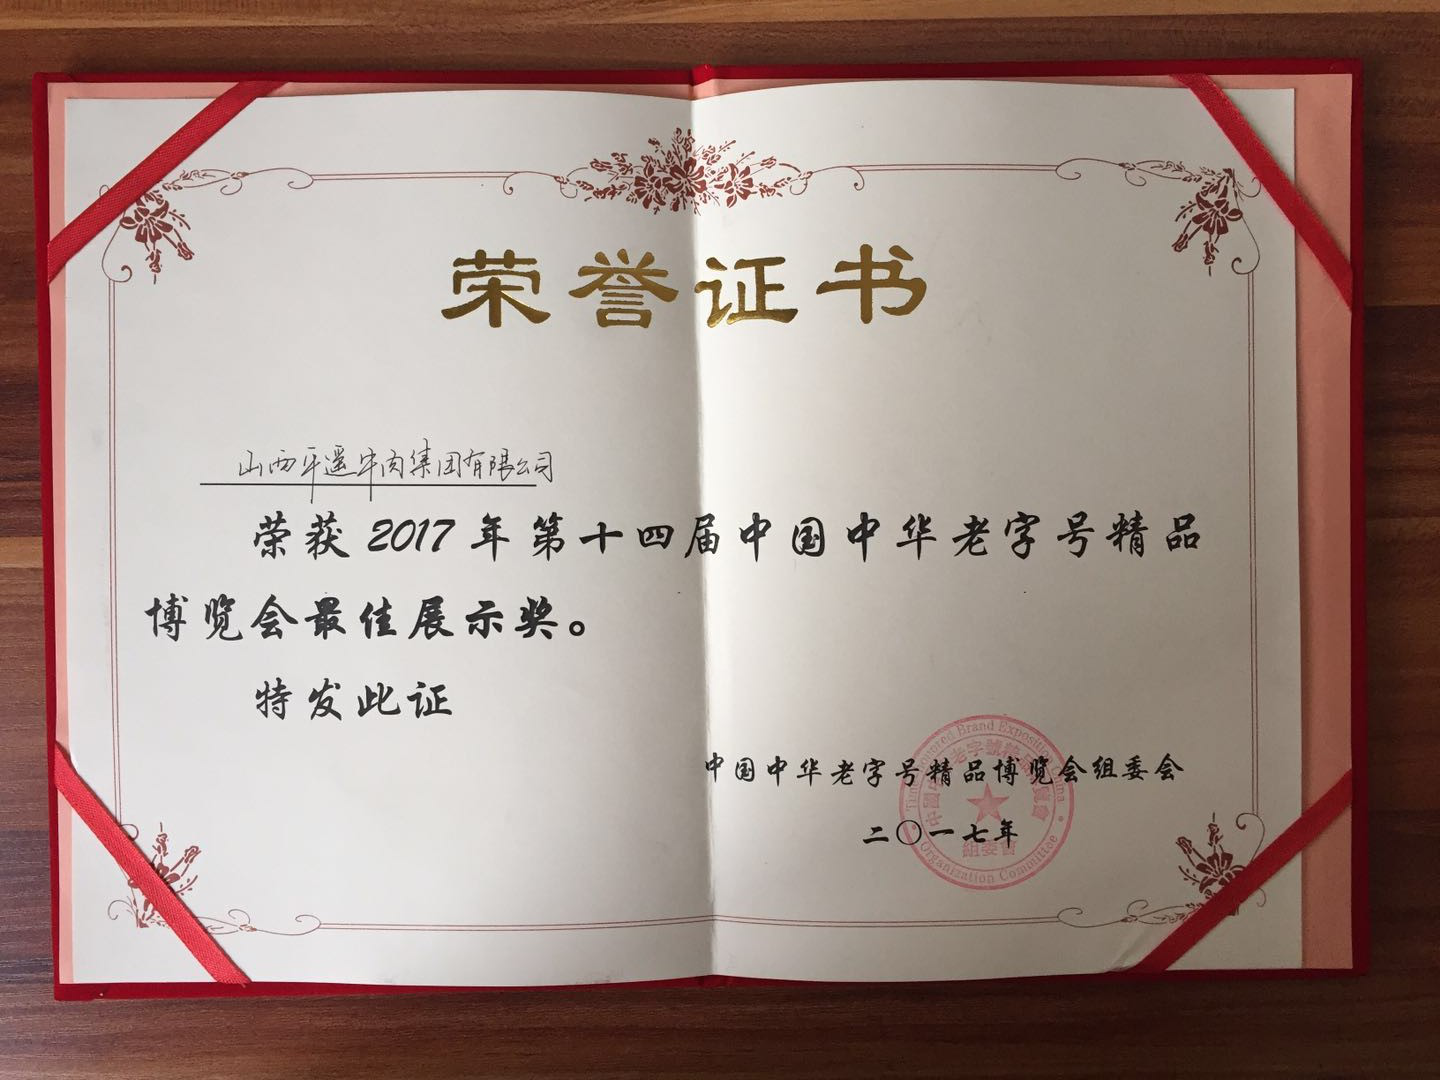 荣誉证书
山西平遥牛肉集团有限公司
荣获2017年第十四届中国中华老字号精品
博览会最佳展示奖。
特发此证
中国中华老字号精品博览会组委会
二〇一七年
Time-honored Brand Exposition China
中國中華老字號精品博覽會
組委會
Organization Committee